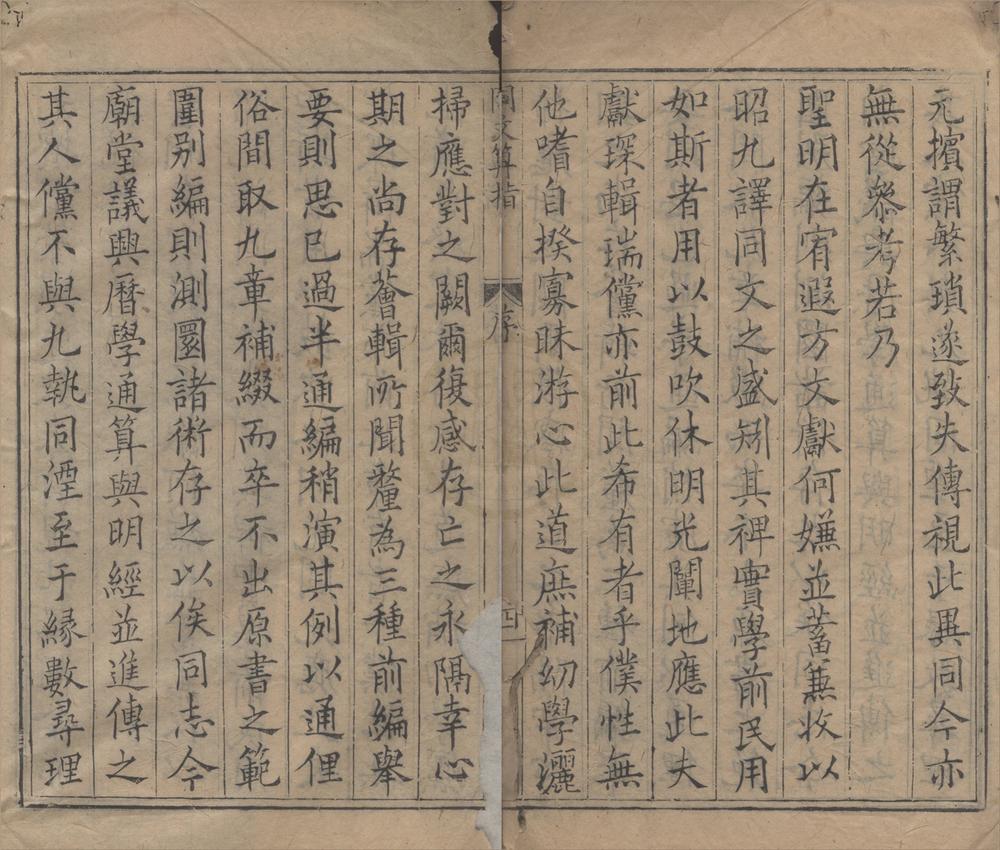 元擯謂繁瑣遂致失傳視此異同今亦
無從叅考若乃
聖明在宥遐方文獻何嫌並蓄兼收以
昭九譯同文之盛矧其裨實學前民用
如斯者用以鼓吹休明光闡地應此夫
獻琛輯瑞儻亦前此希有者乎僕性無
他嗜自揆寡昧游心此道庶補幼學灑
同文算指
序
四
掃應對之闕爾復感存亡之永隔幸心
期之尚存薈輯所聞釐為三種前編舉
要則思已過半通編稍演其例以通俚
俗間取九章補綴而卒不出原書之範
圍别編則測圜諸術存之以俟同志今
廟堂議興曆學通算與明經並進傳之
其人儻不與九執同湮至于縁數尋理